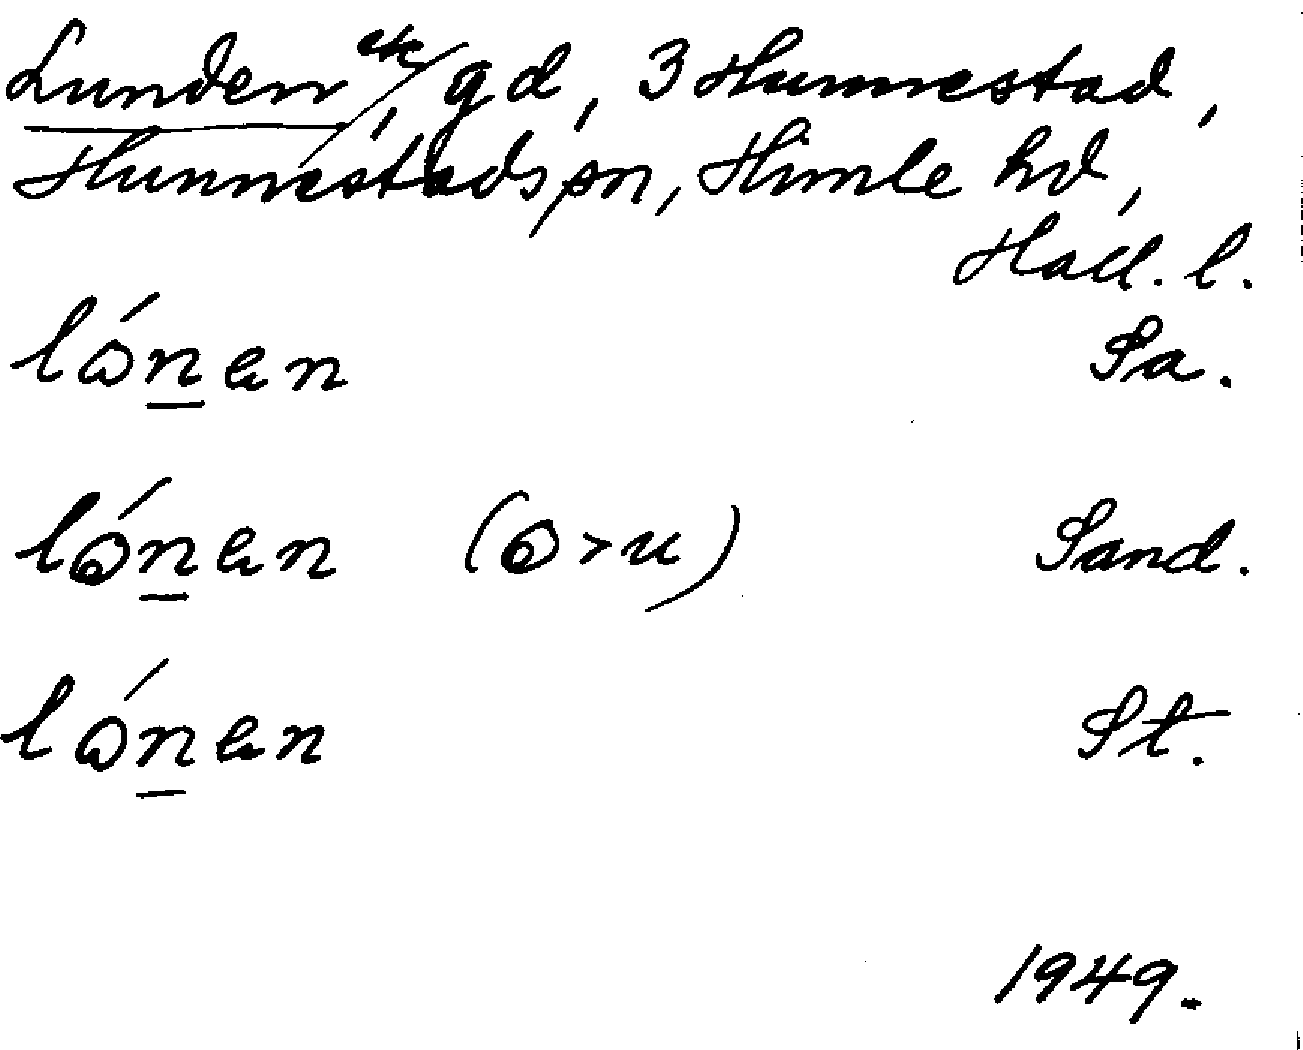 Lunden ek/, gd, 3 Hunnestad,
Hunnestads sn, Himle hd,
Hall. l.
lɷ́n̲ɐn Sa.
lɷ́n̲ɐn (ɷ>u) Sand.
lɷ́n̲ɐn St.
1949.